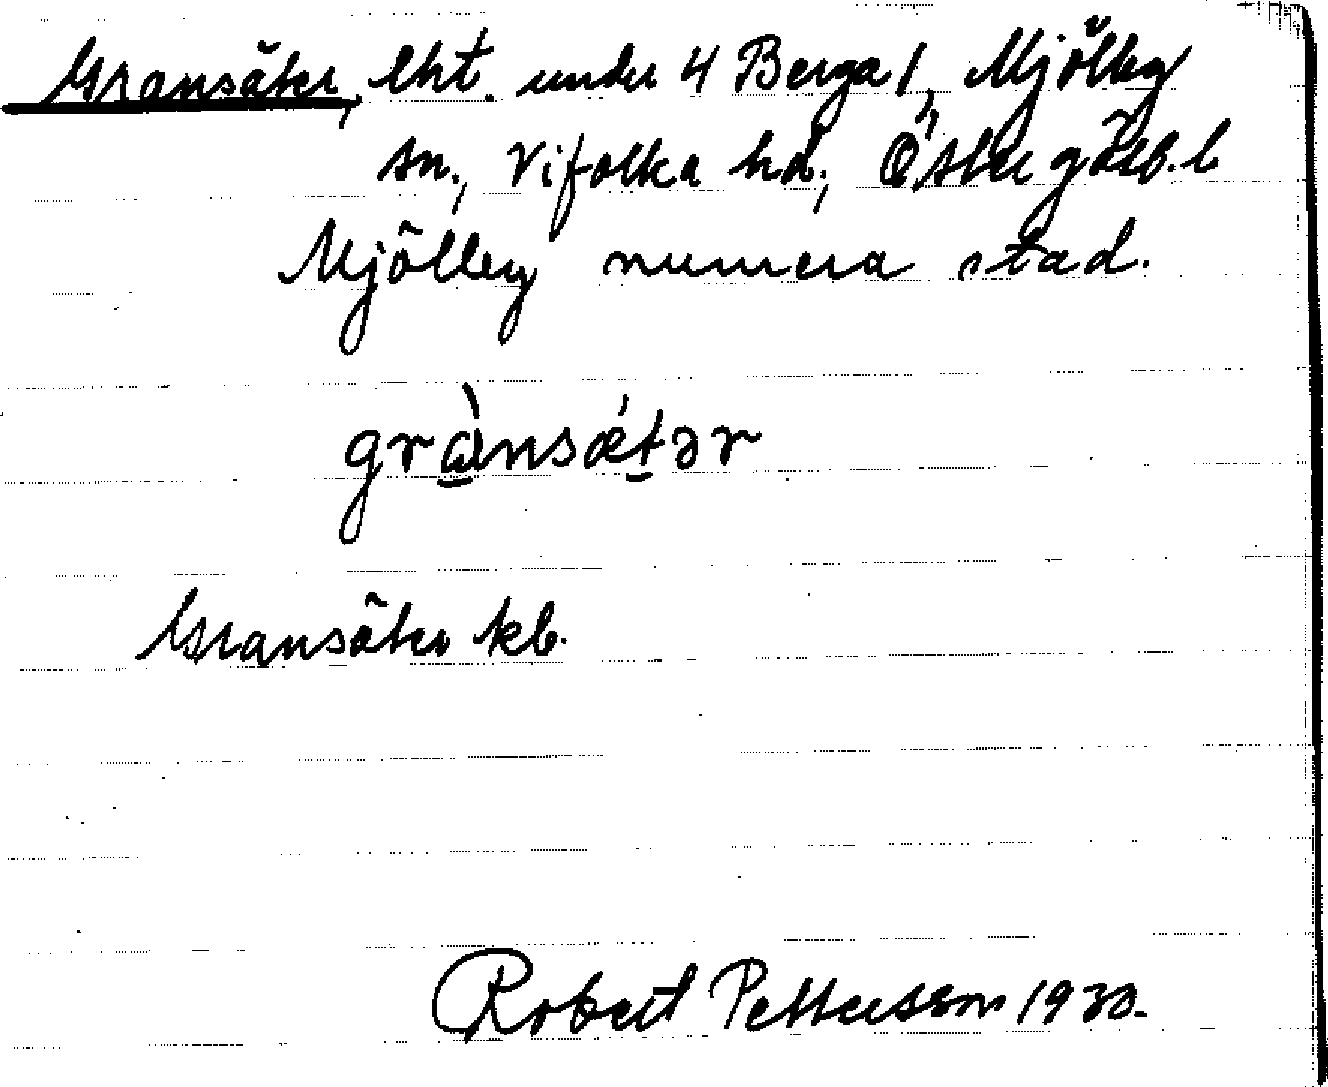 Gransäter, lht. under 4 Berga 1, Mjölby
sn., Vifolka hd., Östergötl. l
Mjölby numera stad.
grànsǽtər
Gransäter kb.
Robert Pettersson 1930.